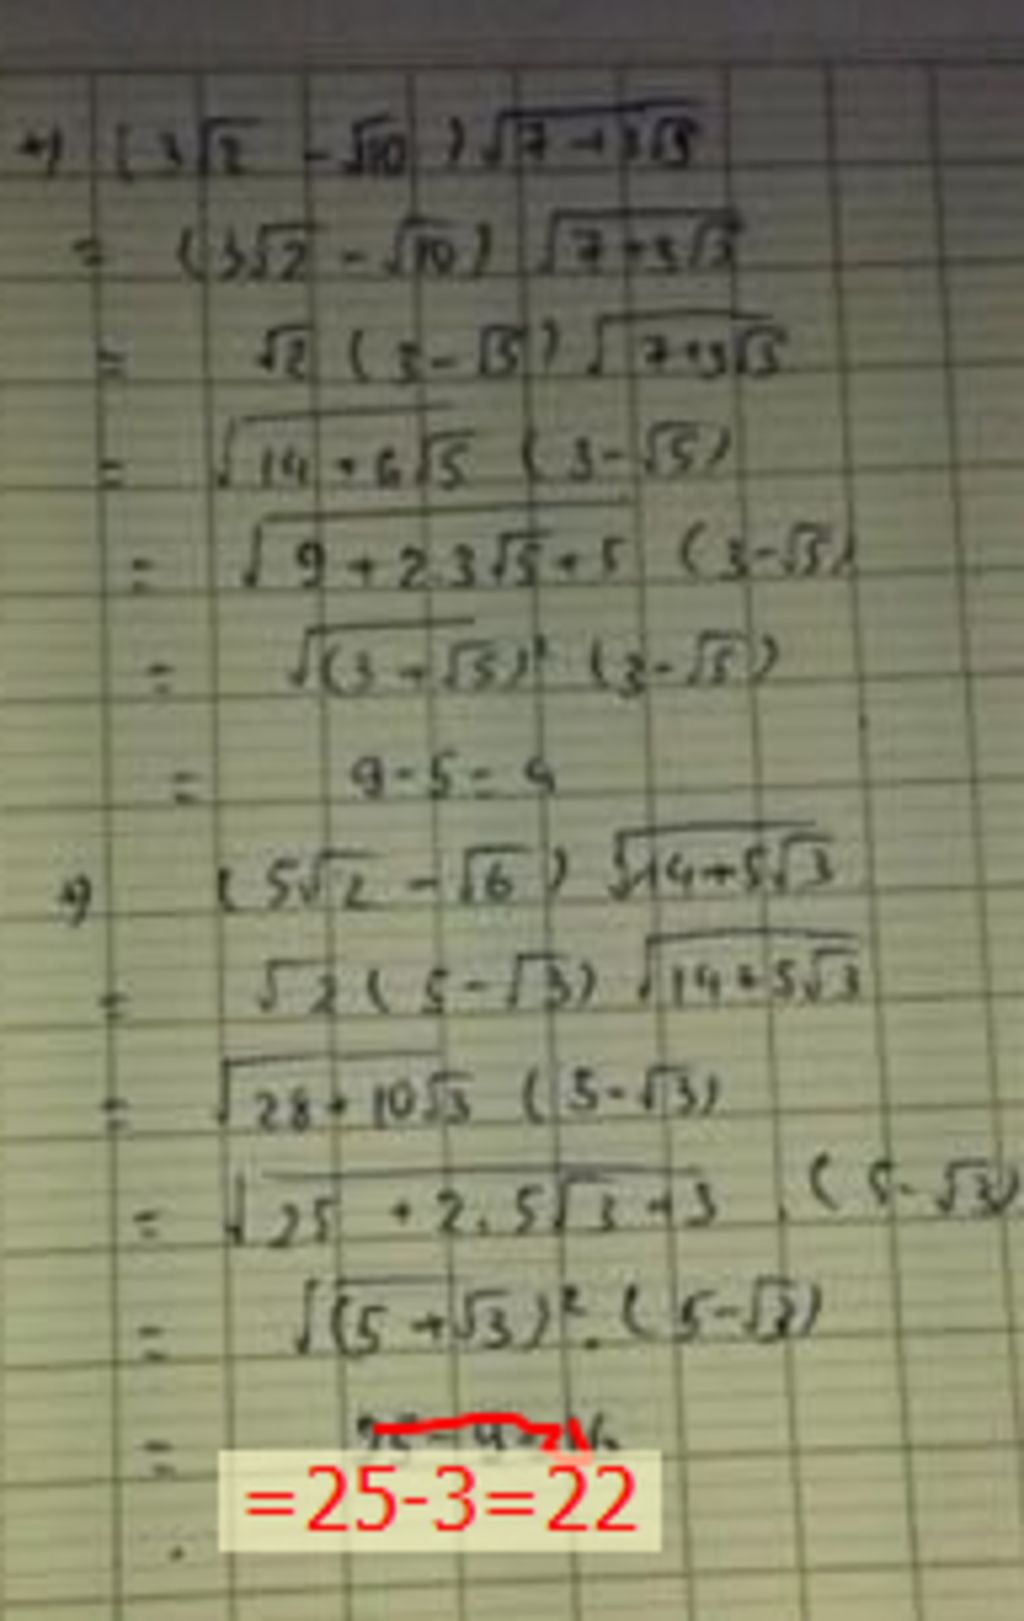 +) (3√2 - √10) √(7+3√5)
= (3√2 - √10) √(7+3√5)
= √2 (3-√5) √(7+3√5)
= √(14+6√5) (3-√5)
= √(9+2.3√5+5) (3-√5)
= √(3+√5)² (3-√5)
= 9-5=4
+) (5√2 - √6) √(14+5√3)
= √2 (5-√3) √(14+5√3)
= √(28+10√3) (5-√3)
= √(25+2.5√3+3) . (5-√3)
= √(5+√3)² . (5-√3)
=
=25-3=22